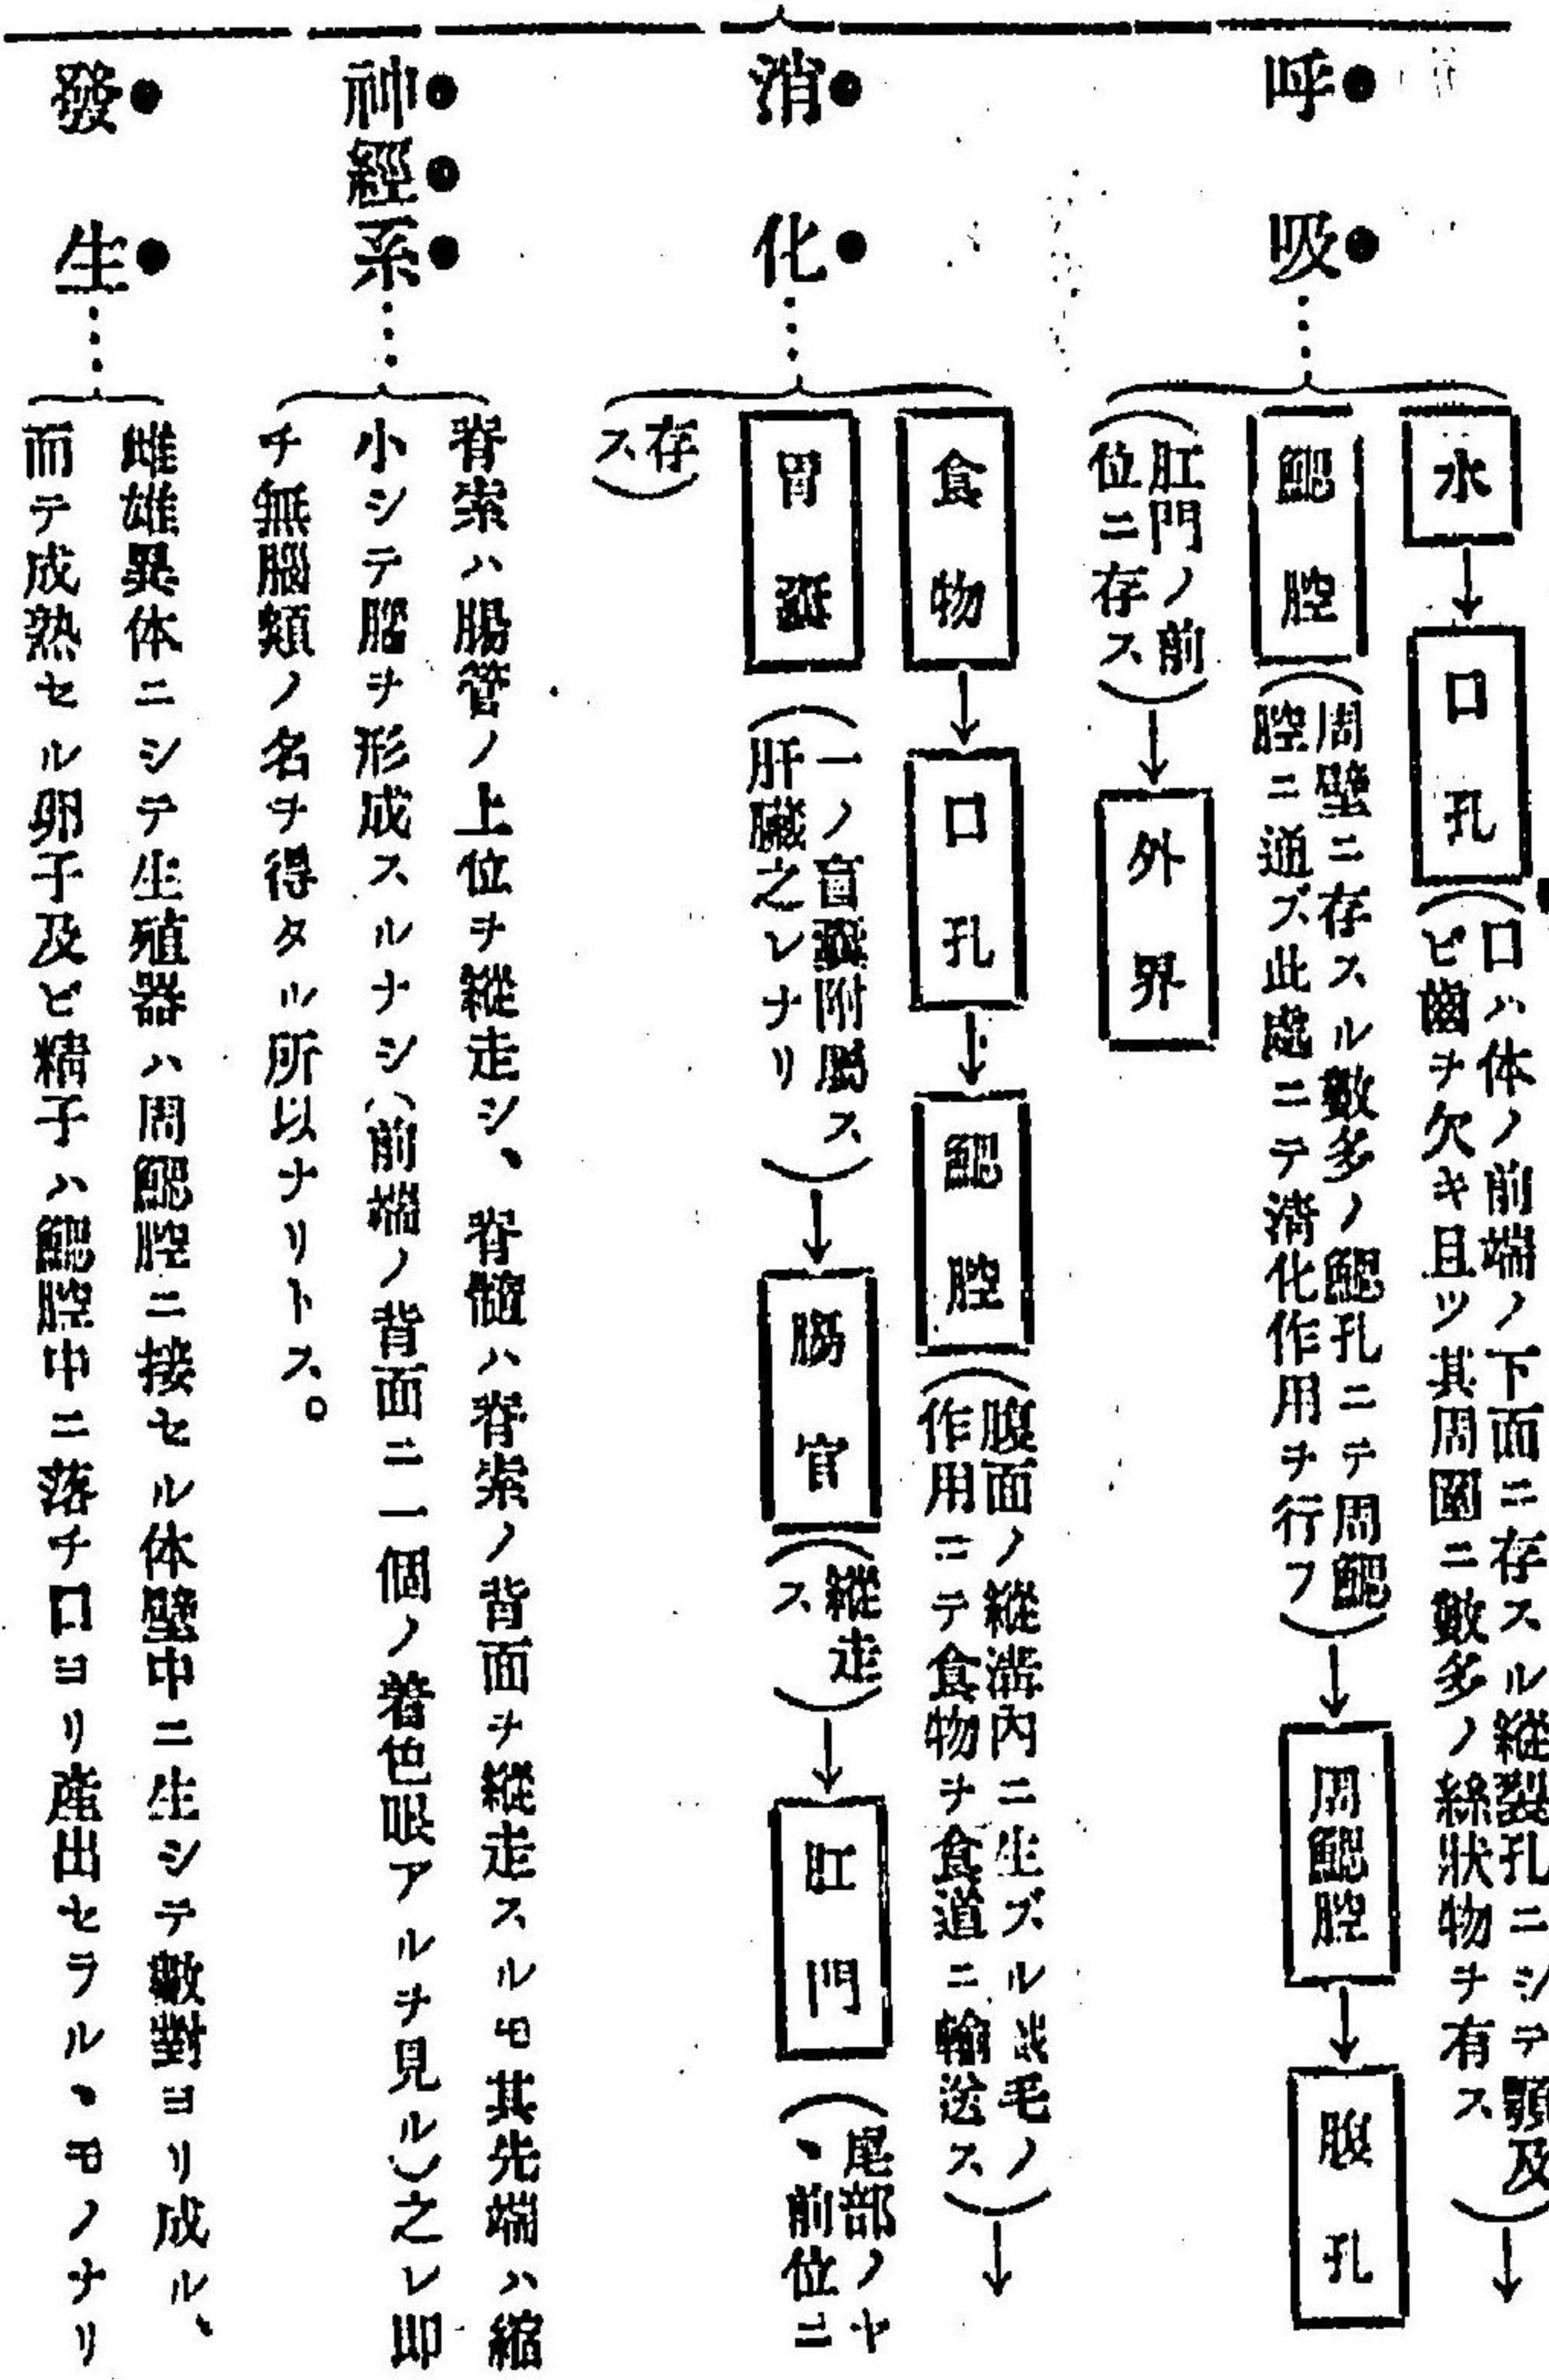 呼吸……
水→口孔(口ハ体ノ前端ノ下面ニ存スル縱裂孔ニシテ顎及
ビ齒ヲ欠キ且ツ其周圍ニ數多ノ絲狀物ヲ有ス)→
鰓腔(周壁ニ存スル數多ノ鰓孔ニテ周鰓
腔ニ通ズ此處ニテ淸化作用ヲ行フ)→周鰓腔→腹孔
(肛門ノ前
位ニ存ス)→外界
消化……
食物→口孔→鰓腔(腹面ノ縱溝內ニ生ズル毛ノ
作用ニテ食物ヲ食道ニ輸送ス)→
胃囊(一ノ盲囊附屬ス
肝臟之レナリ)→腸官(縱走
ス)→肛門(尾部ノヤ
、前位ニ
存
ス)
神經系……
脊索ハ腸管ノ上位ヲ縱走シ、脊髓ハ脊索ノ背面ヲ縱走スルモ其先端ハ縮
小シテ腦ヲ形成スルナシ(前端ノ背面ニ一個ノ着色眼アルヲ見ル)之レ卽
チ無腦類ノ名ヲ得タル所以ナリトス。
發生……
雌雄異体ニシテ生殖器ハ周鰓腔ニ接セル体壁中ニ生シテ數對ヨリ成ル、
而テ成熟セル卵子及ビ精子ハ鰓腔中ニ落チ口ヨリ產出セラル、モノナリ